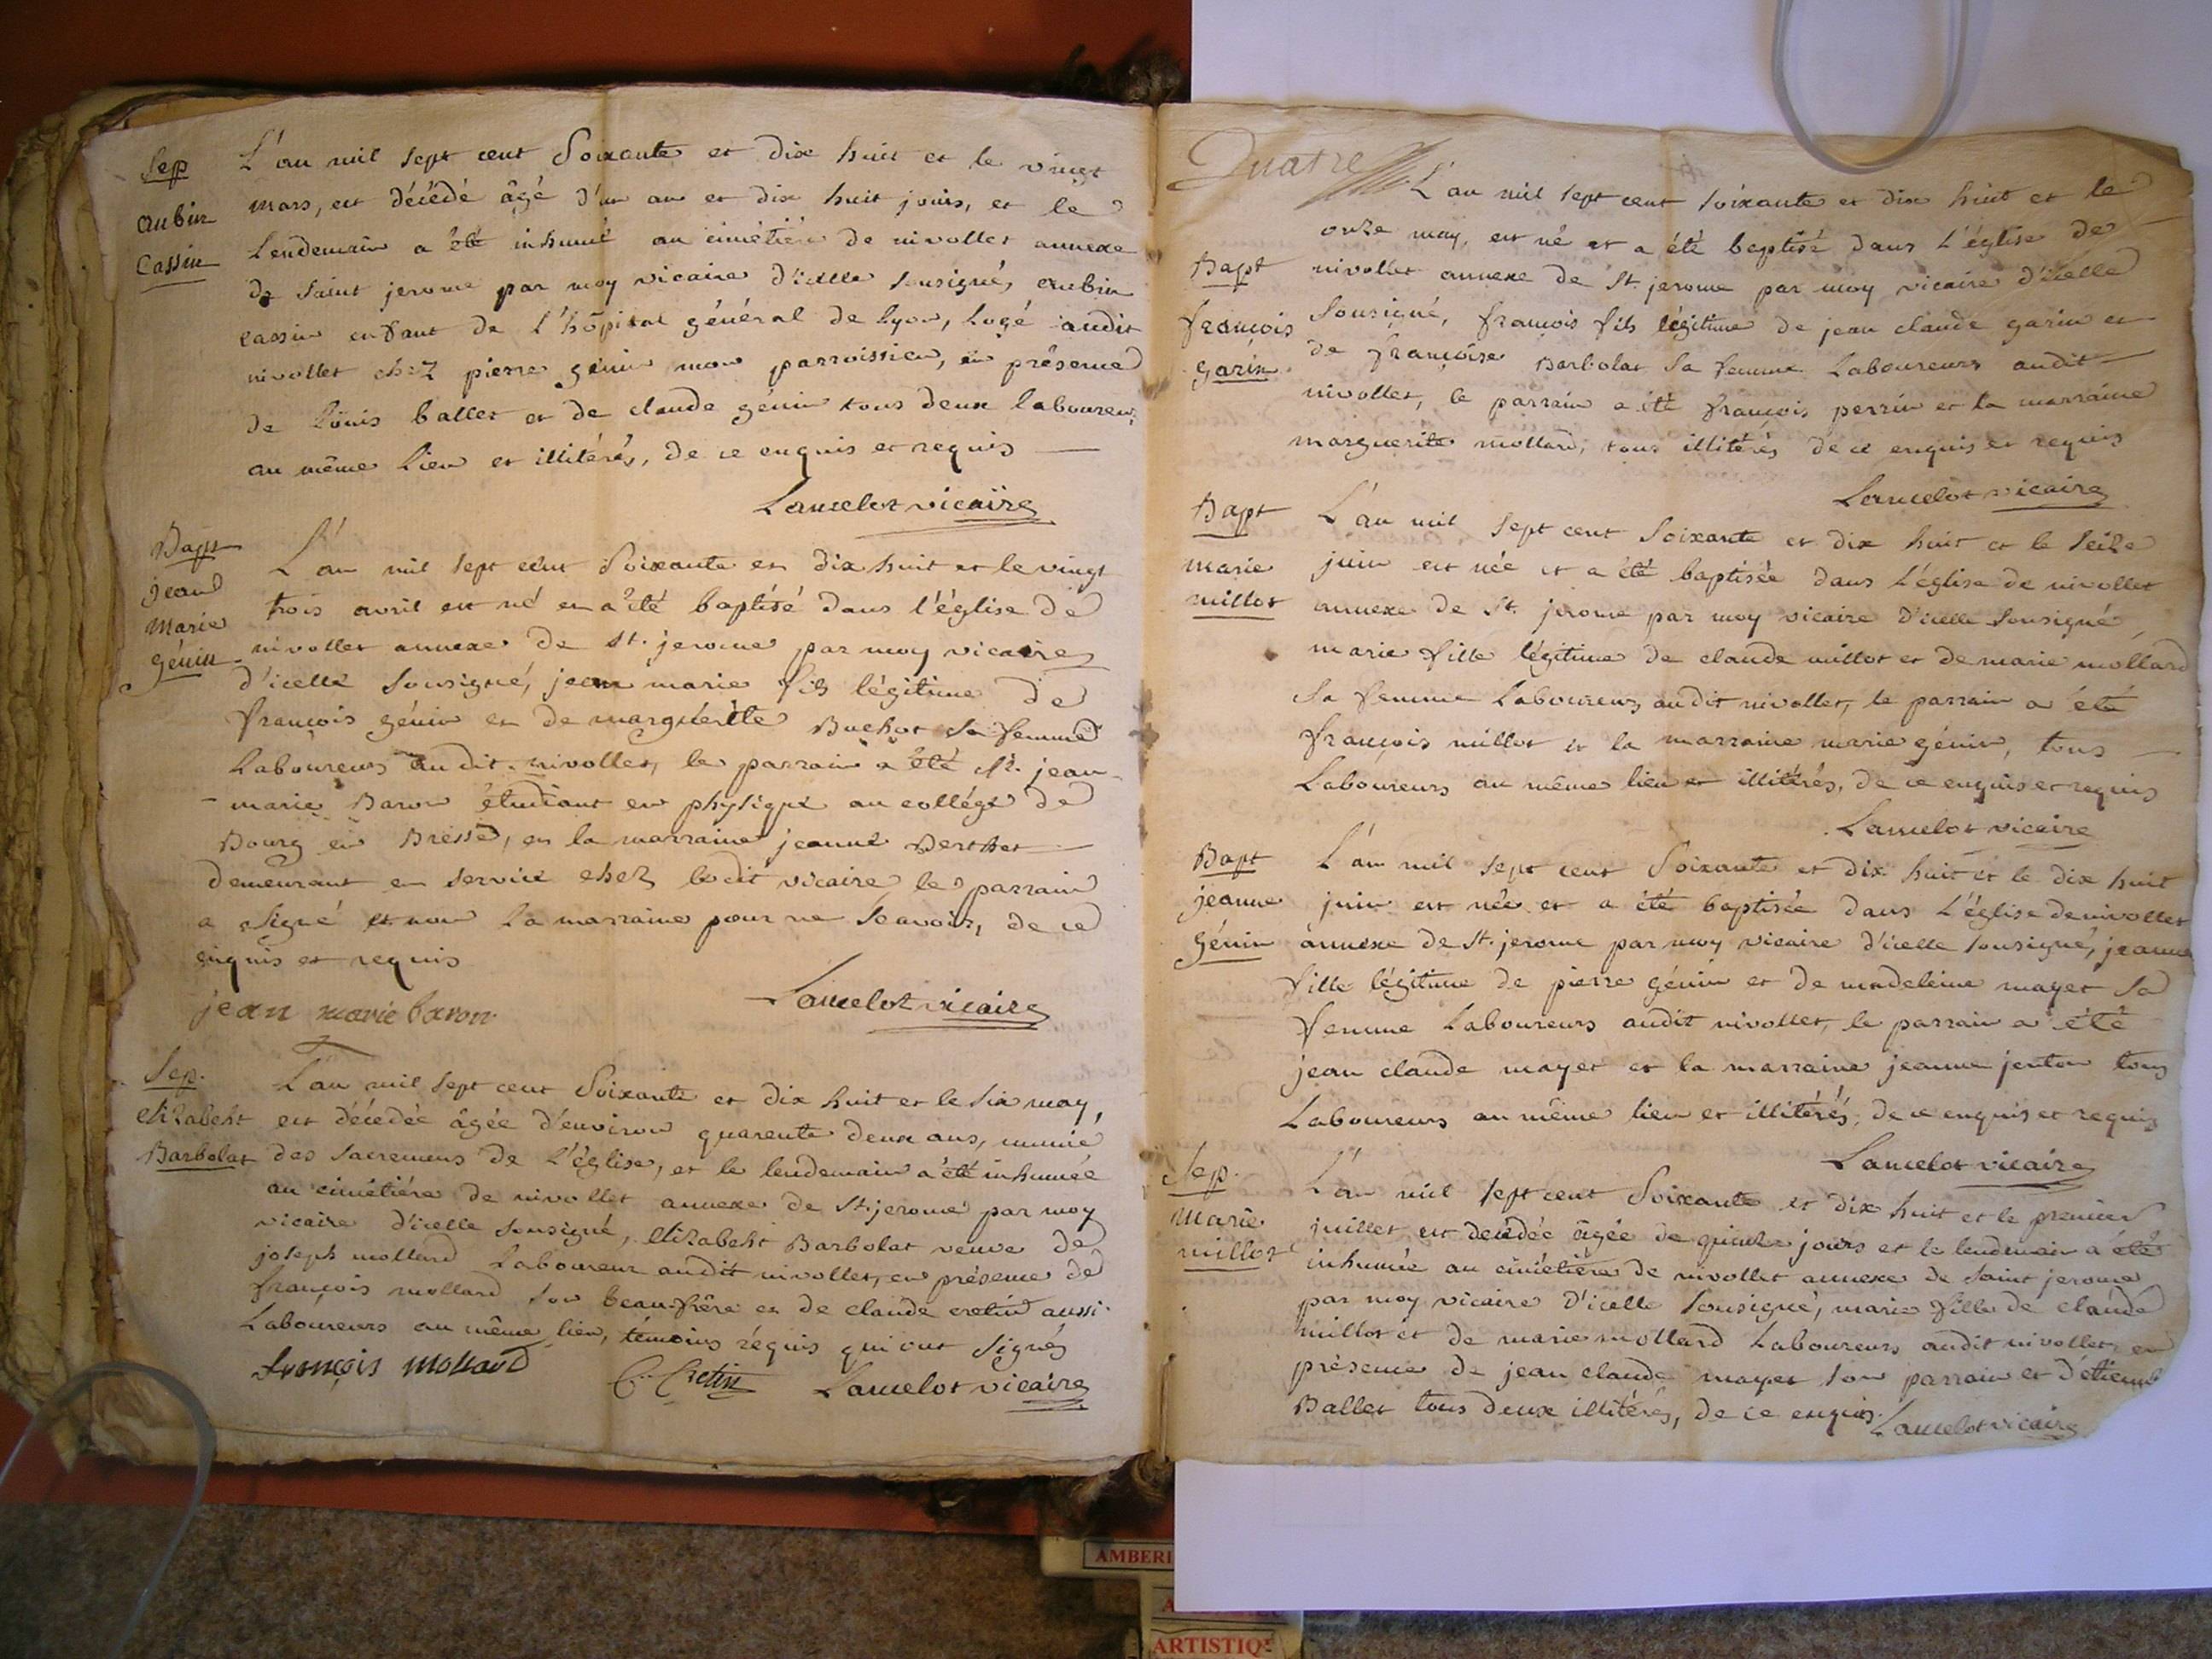 Sep
aubin
Cassin
L'an mil sept cent Soixante et dix huit et le vingt
mars, est décédé âgé d'un an et dix huit jours, et le
Lendemain a été inhumé au cimétiére de nivollet annexe
de saint jerome par moy vicaire d'icelle sousigné, aubin
cassin enfant de l'hôpital général de lyon, logé audit
nivollet chez pierre génin mon parroissien, en présence
de Loüis ballet et de claude génin tous deux laboureurs
au même lieu et illitérés, de ce enquis et requis
Lancelot vicaire
Bapt
jean
marie
génin
L'an mil sept cent Soixante et dix huit et le vingt
trois avril est né et a été baptisé dans l'église de
nivollet annexe de st. jerome par moy vicaire
d'icelle sousigné, jean marie fils légitime de
françois génin et de marguérite Buchot sa femme
Laboureurs audit nivollet, le parrain a été sr. jean-
-marie Baron étudiant en physique au collége de
Bourg en Bresse, et la marraine jeanne Berthet
demeurant en service chez ledit vicaire, le parrain
a signé et non la marraine pour ne sçavoir, de ce
enquis et requis
jean marie baron
Lancelot vicaire
Sep.
elizabeht
Barbolat
L'an mil sept cent Soixante et dix huit et le six may,
est décédée âgée d'environ quarente deux ans, munie
des sacremens de l'église, et le lendemain a été inhumée
au cimétiére de nivollet annexe de st. jerome par moy
vicaire d'icelle sousigné, elizabeht Barbolat veuve de
joseph mollard Laboureur audit nivollet, en présence de
françois mollard son beau-frére et de claude cretin aussi
Laboureurs au même lieu, témoins réquis qui ont signés
françois mollard
C. Cretin
Lancelot vicaire
Quatre
Bapt
françois
garin
L'an mil sept cent soixante et dix huit et le
onze may, est né et a été baptisé dans l'église de
nivollet annexe de st. jerome par moy vicaire d'icelle
sousigné, françois fils légitime de jean claude garin et
de françoise Barbolat sa femme Laboureurs audit
nivollet, le parrain a été françois perrin et la marraine
marguerite mollard, tous illitérés de ce enquis et requis
Lancelot vicaire
Bapt
marie
millot
L'an mil sept cent Soixante et dix huit et le seize
juin est née et a été baptisée dans l'église de nivollet
annexe de st. jerome par moy vicaire d'icelle sousigné,
marie fille légitime de claude millot et de marie mollard
sa femme Laboureurs audit nivollet, le parrain a été
françois millot et la marraine marie génin, tous
Laboureurs au même lieu et illitérés, de ce enquis et requis
Lancelot vicaire
Bapt
jeanne
génin
L'an mil sept cent Soixante et dix huit et le dix huit
juin est née et a été baptisée dans l'église de nivollet
annexe de st. jerome par moy vicaire d'icelle sousigné, jeanne
fille légitime de pierre génin et de madeleine mayet sa
femme Laboureurs audit nivollet, le parrain a été
jean claude mayet et la marraine jeanne jenton tous
Laboureurs au même lieu et illitérés, de ce enquis et requis
Lancelot vicaire
Sep.
marie
millot
L'an mil sept cent Soixante et dix huit et le premier
juillet est decédée âgée de quinze jours et le lendemain a été
inhumée au cimétiére de nivollet annexe de saint jerome
par moy vicaire d'icelle sousigné, marie fille de claude
millot et de marie mollard Laboureurs audit nivollet, en
présence de jean claude mayet son parrain et d'étienne
Ballet tous deux illitérés, de ce enquis.
Lancelot vicaire
AMBERI
ARTISTIQ